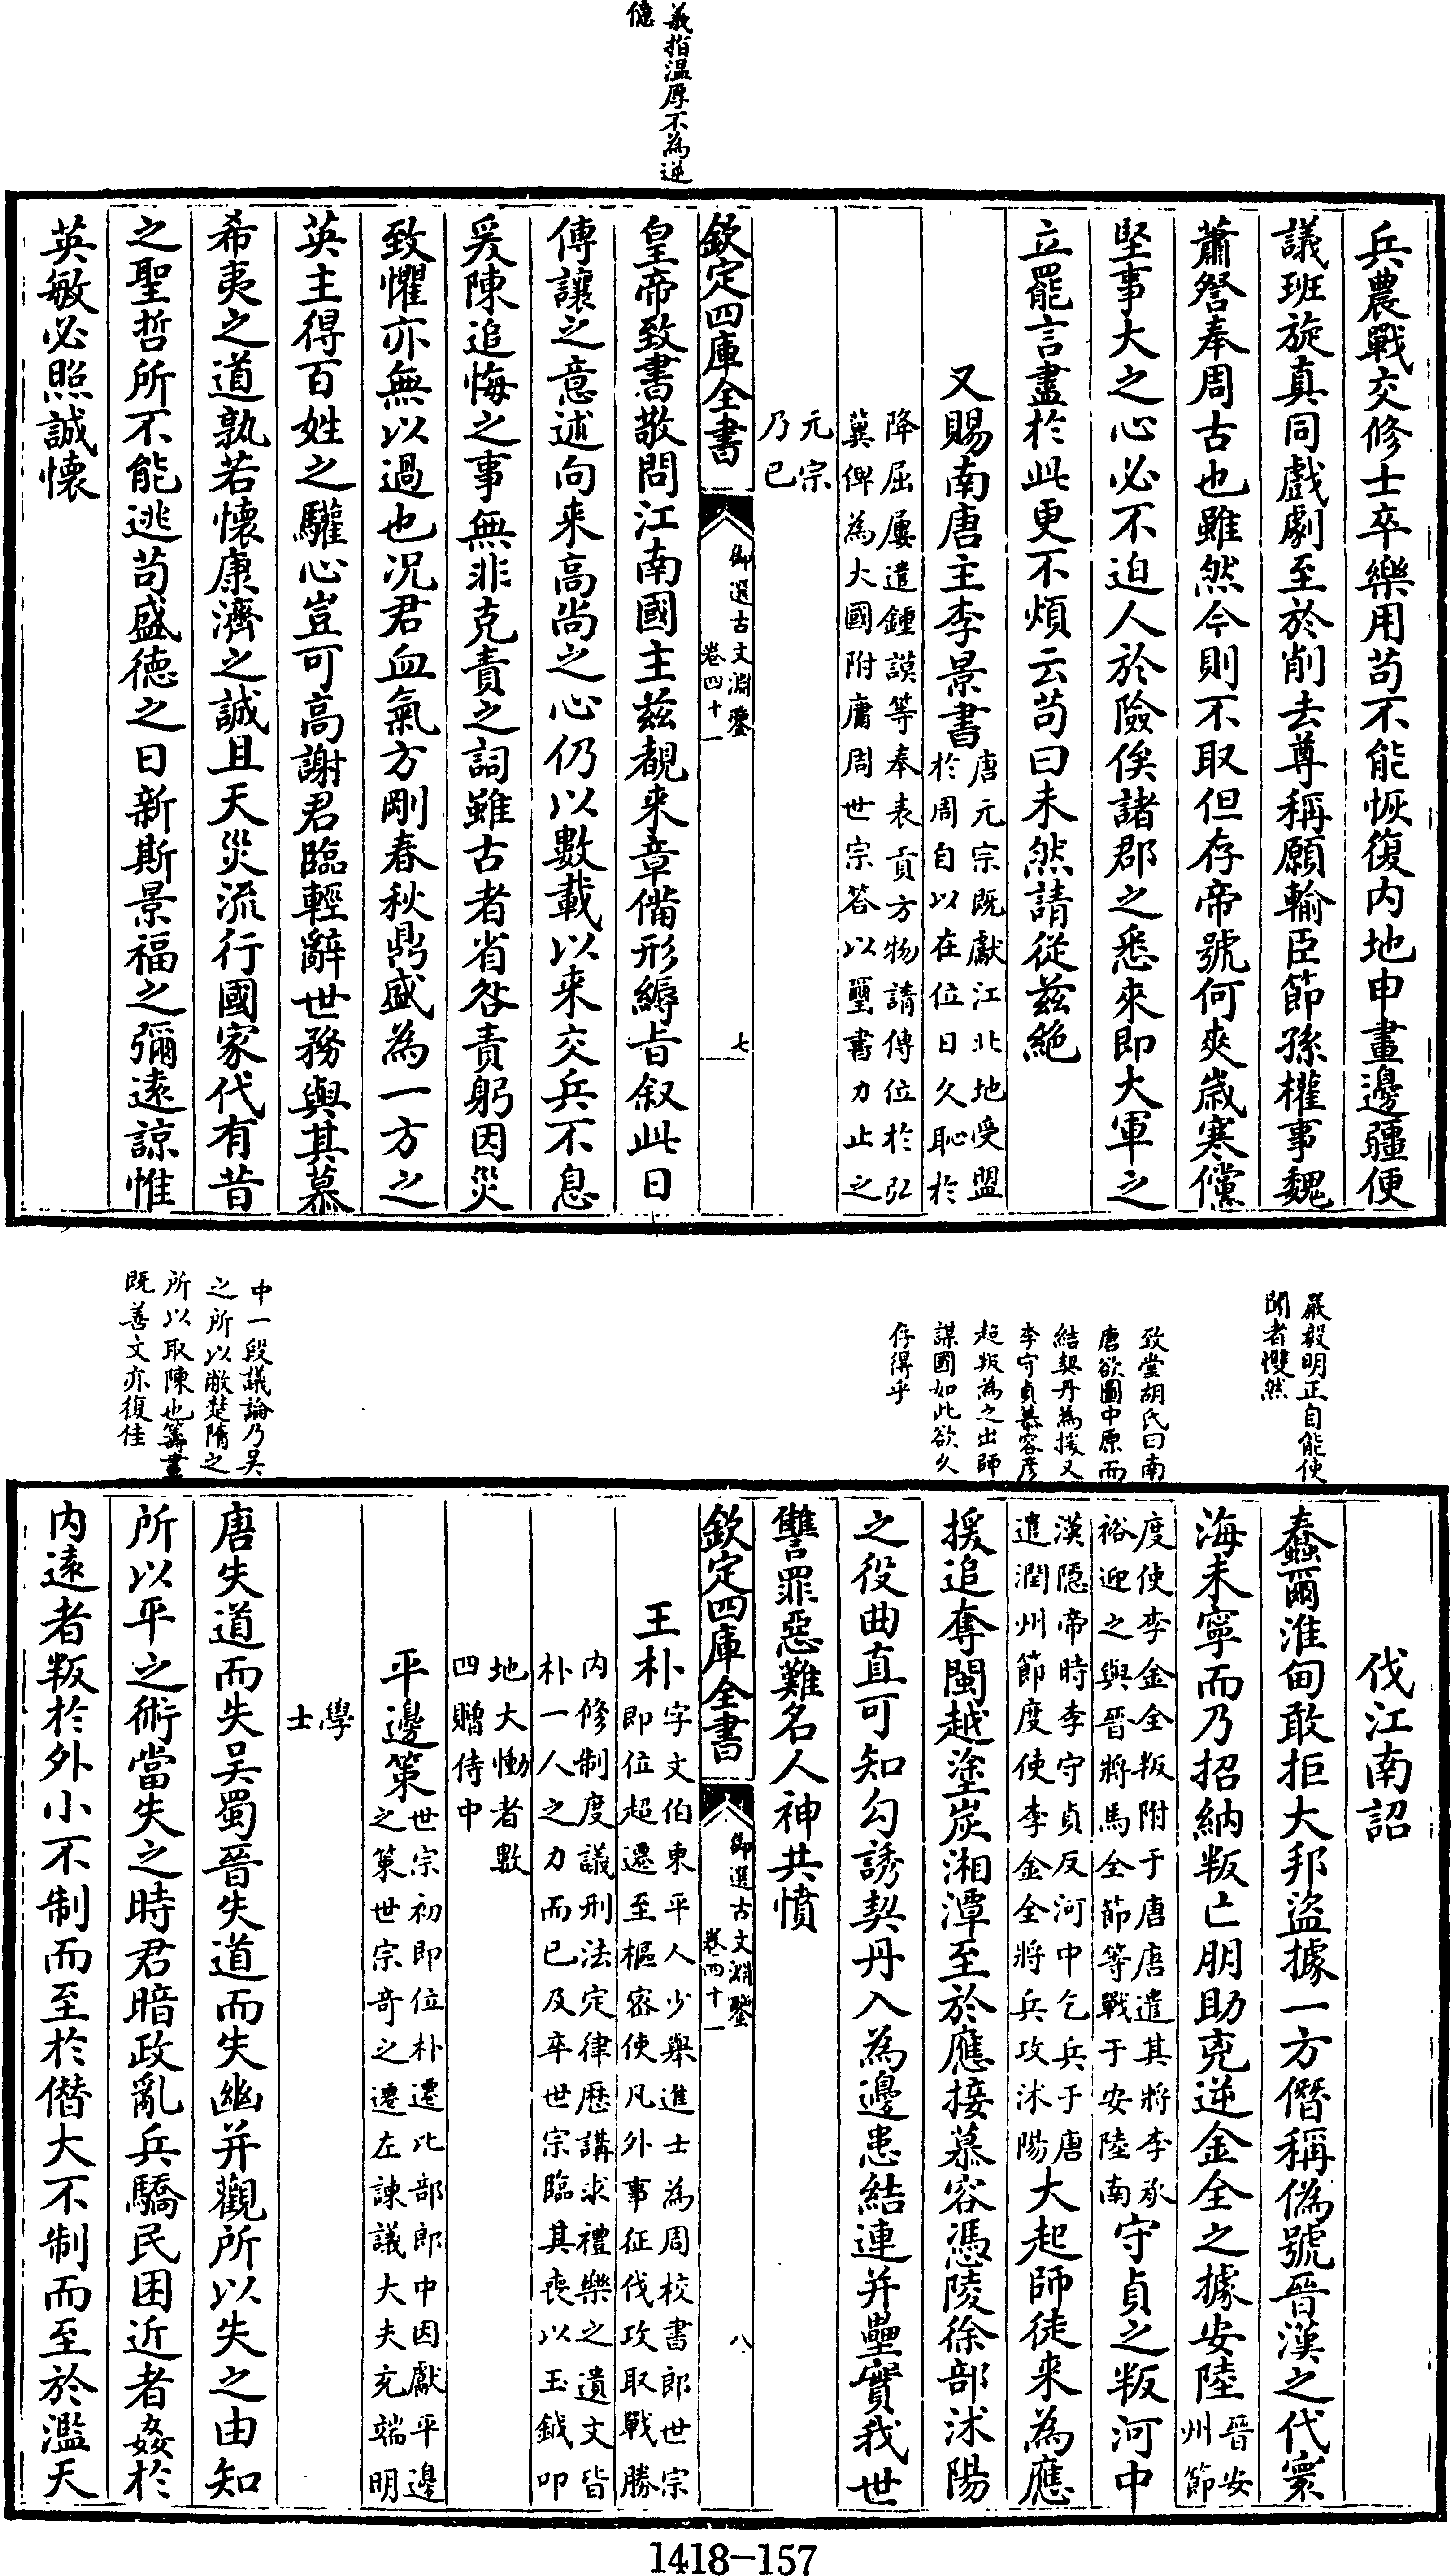 義指温厚不為逆
億
兵農戰交修士卒樂用苟不能恢復内地申畫邊疆便
議班旋真同戲劇至於削去尊稱願輸臣節孫權事魏
蕭詧奉周古也雖然今則不取但存帝號何爽嵗寒儻
堅事大之心必不迫人於險俟諸郡之悉來即大軍之
立罷言盡於此更不煩云苟曰未然請從兹絶
又賜南唐主李景書唐元宗既獻江北地受盟
於周自以在位日久恥於
降屈屢遣鍾謨等奉表貢方物請傳位於弘
冀俾為大國附庸周世宗答以璽書力止之
元宗
乃已
欽定四庫全書
御選古文淵鑒
卷四十一
七
皇帝致書敬問江南國主兹覩来章備形縟旨叙此日
傳讓之意述向来髙尚之心仍以數載以来交兵不息
爰陳追悔之事無非克責之詞雖古者省咎責躬因災
致懼亦無以過也况君血氣方剛春秋鼎盛為一方之
英主得百姓之驩心豈可高謝君臨輕辭世務與其慕
希夷之道孰若懷康濟之誠且天災流行國家代有昔
之聖哲所不能逃苟盛徳之日新斯景福之彌遠諒惟
英敏必照誠懷
嚴毅明正自能使
聞者慴然
致堂胡氏曰南
唐欲圖中原而
結契丹為援又
李守貞慕容彦
超叛為之出師
謀國如此欲久
存得乎
中一段議論乃吴
之所以敝楚隋之
所以取陳也籌畫
既善文亦復佳
伐江南詔
蠢爾淮甸敢拒大邦盜據一方僭稱偽號晉漢之代寰
海未寧而乃招納叛亡朋助兇逆金全之據安陸晉安
州節
度使李金全叛附于唐唐遣其將李承
裕迎之與晉將馬全節等戰于安陸南守貞之叛河中
漢隱帝時李守貞反河中乞兵于唐
遣潤州節度使李金全將兵攻沭陽大起師徒来為應
援追奪閩越塗炭湘潭至於應接慕容憑陵徐部沭陽
之役曲直可知勾誘契丹入為邊患結連并壘實我世
讐罪惡難名人神共憤
欽定四庫全書
御選古文淵鑒
卷四十一
八
王朴字文伯東平人少舉進士為周校書郎世宗
即位超遷至樞密使凡外事征伐攻取戰勝
内修制度議刑法定律厯講求禮樂之遺文皆
朴一人之力而已及卒世宗臨其喪以玉鉞叩
地大慟者數
四贈侍中
平邊策世宗初即位朴遷比部郎中因獻平邊
之策世宗奇之遷左諫議大夫充端明
學
士
唐失道而失吴蜀晉失道而失幽并觀所以失之由知
所以平之術當失之時君暗政亂兵驕民困近者姦於
内遠者叛於外小不制而至於僭大不制而至於濫天
1418-157